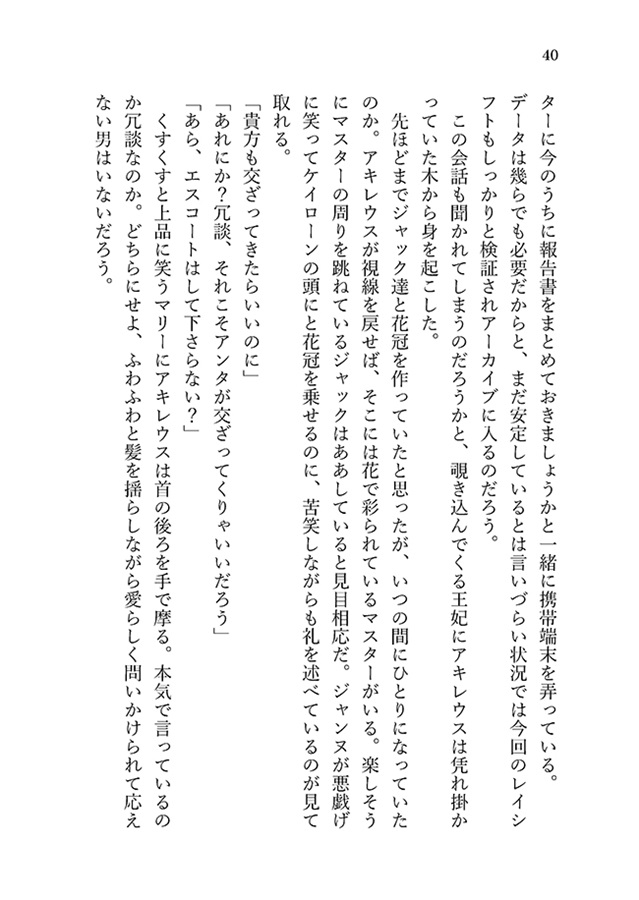 40
ターに今のうちに報告書をまとめておきましょうかと一緒に携帯端末を弄っている。
データは幾らでも必要だからと、まだ安定しているとは言いづらい状況では今回のレイシ
フトもしっかりと検証されアーカイブに入るのだろう。
この会話も聞かれてしまうのだろうかと、覗き込んでくる王妃にアキレウスは凭れ掛か
っていた木から身を起こした。
先ほどまでジャック達と花冠を作っていたと思ったが、いつの間にひとりになっていた
のか。アキレウスが視線を戻せば、そこには花で彩られているマスターがいる。楽しそう
にマスターの周りを跳ねているジャックはああしていると見目相応だ。ジャンヌが悪戯げ
に笑ってケイローンの頭にと花冠を乗せるのに、苦笑しながらも礼を述べているのが見て
取れる。
「貴方も交ざってきたらいいのに」
「あれにか？冗談、それこそアンタが交ざってくりゃいいだろう」
「あら、エスコートはして下さらない？」
くすくすと上品に笑うマリーにアキレウスは首の後ろを手で摩る。本気で言っているの
か冗談なのか。どちらにせよ、ふわふわと髪を揺らしながら愛らしく問いかけられて応え
ない男はいないだろう。